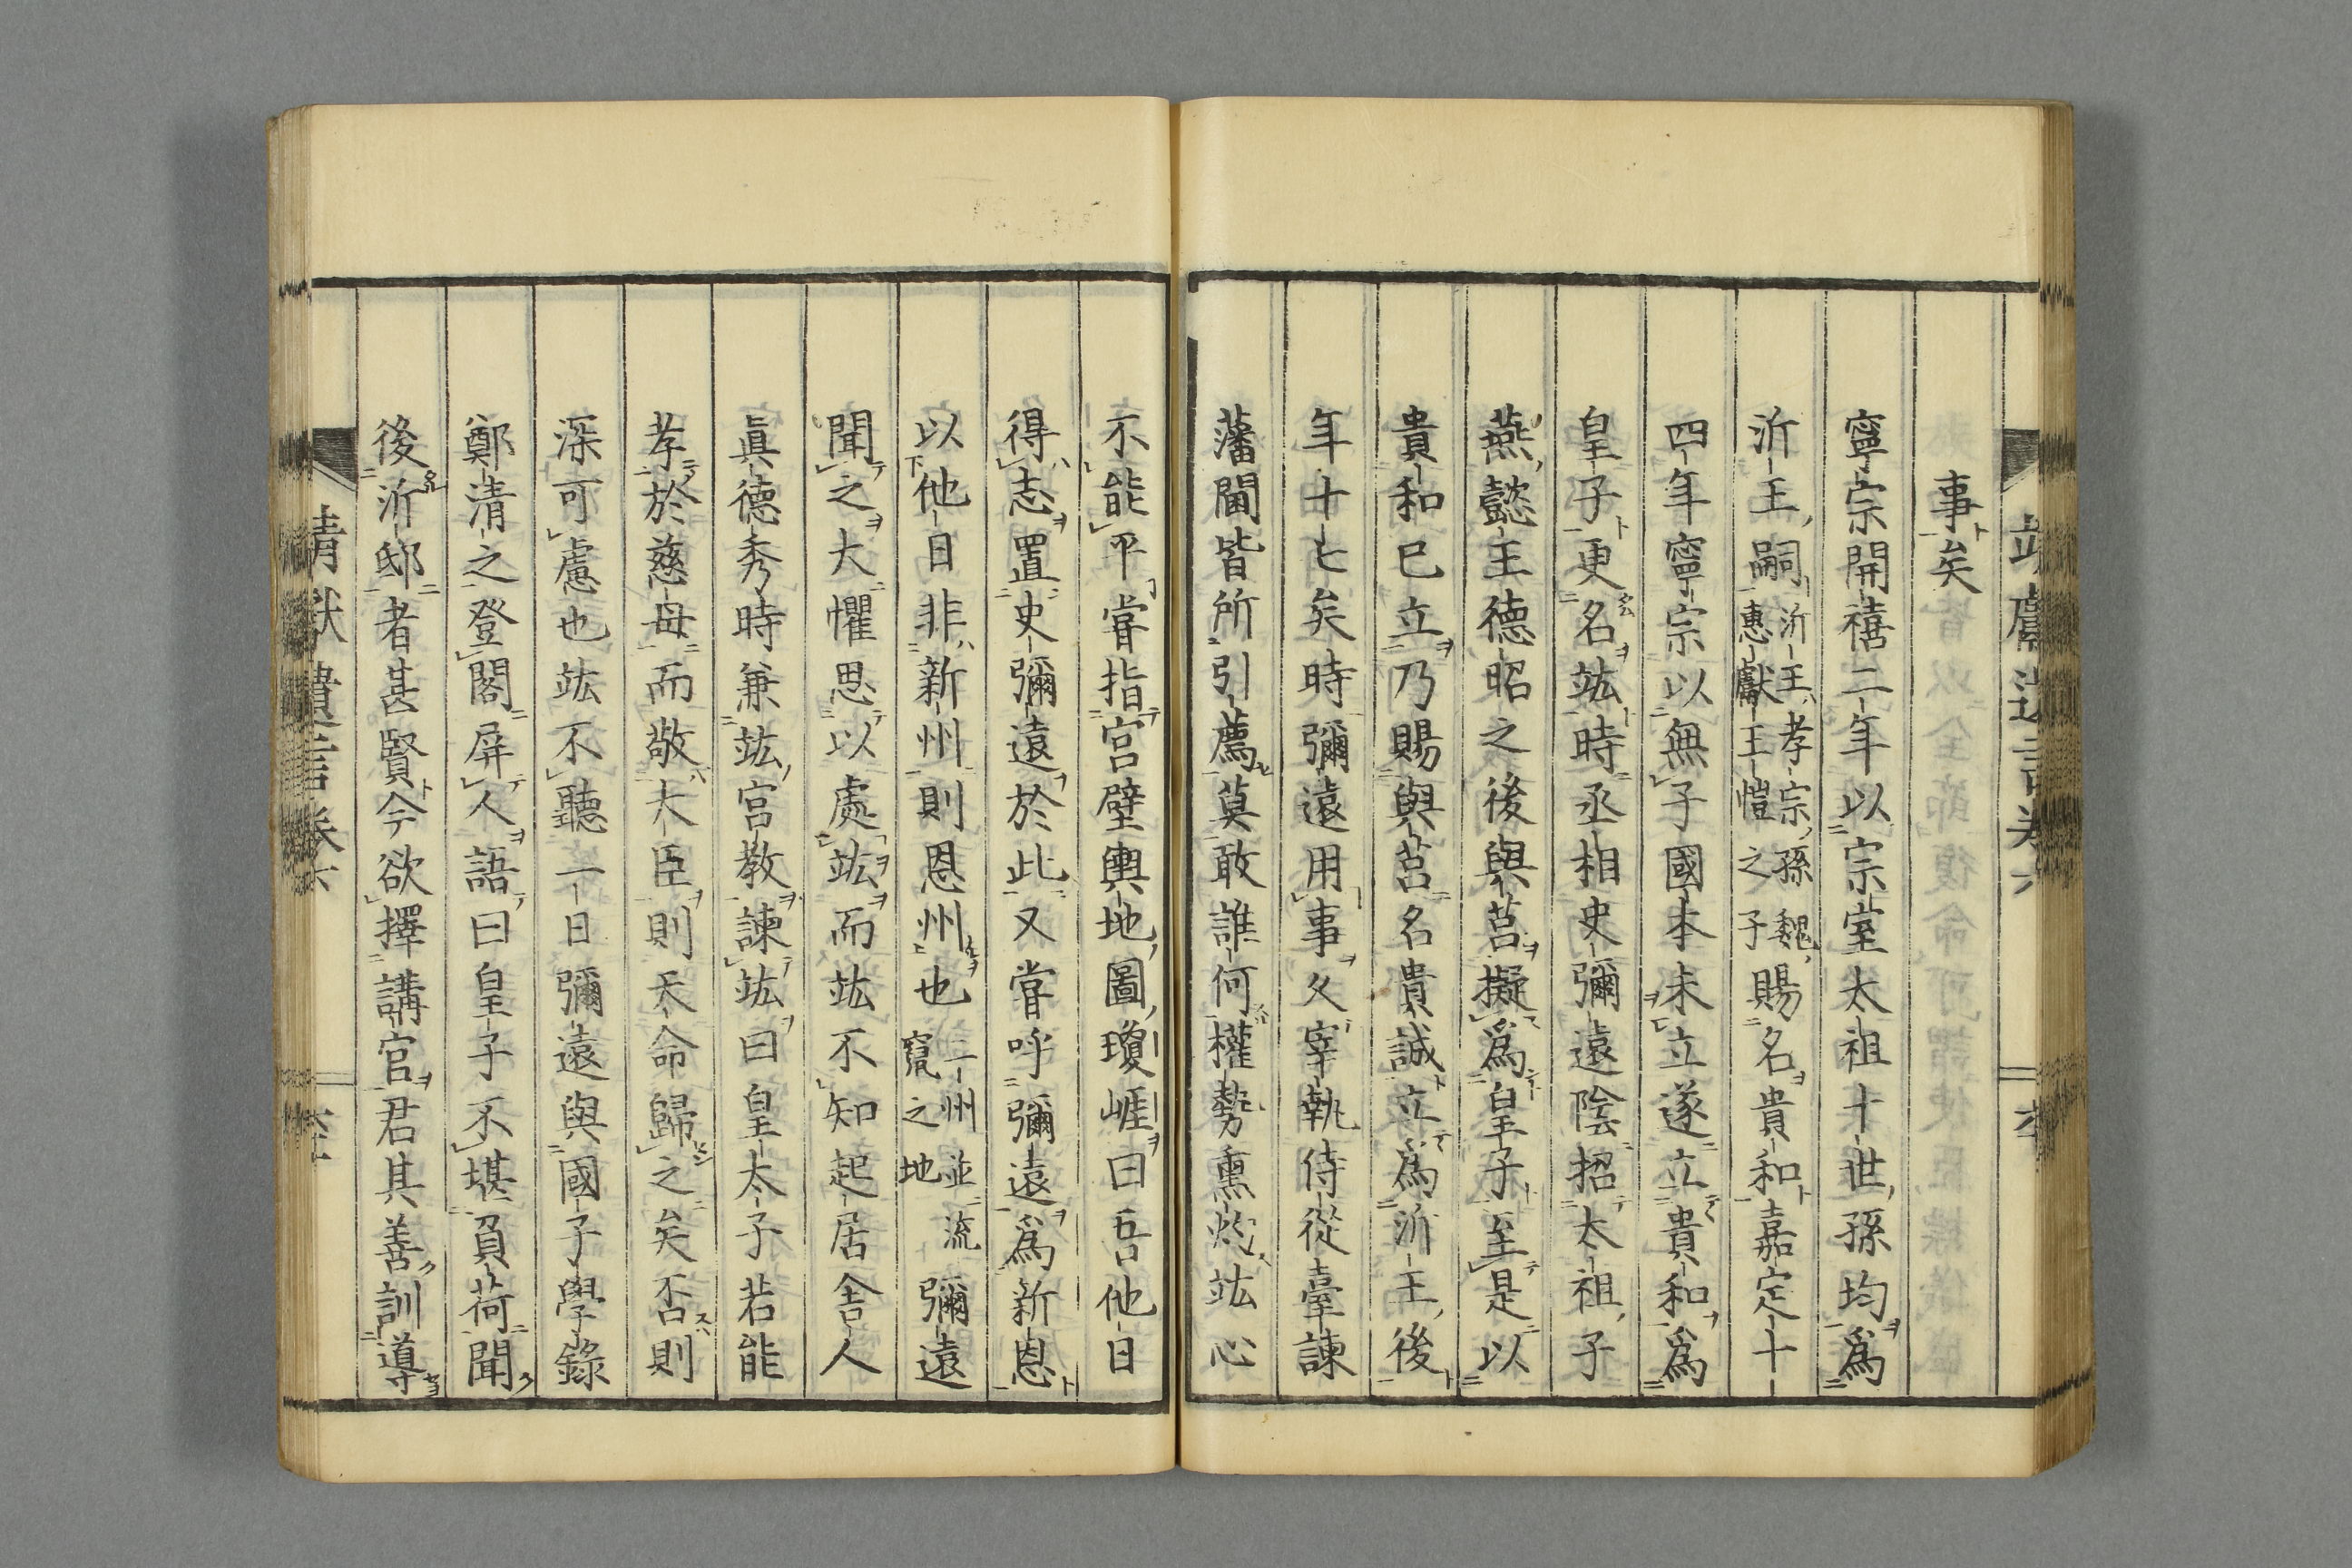 靖獻遺言卷六
事矣
寧宗開禧二年以宗室太祖十世孫均爲
沂王嗣沂王孝宗孫魏惠獻王愷之子賜名貴和嘉定十
四年寧宗以無子國本未立遂立貴和爲
皇子更名竑時丞相史彌遠陰招太祖子
燕懿王德昭之後與莒擬爲皇子至是以
貴和已立乃賜與莒名貴誠立爲沂王後
年十七矣時彌遠用事久宰執侍從臺諫
藩閫皆所引薦莫敢誰何權勢熏灼竑心
不能平嘗指宮壁輿地圖瓊崖曰吾他日
得志置史彌遠於此又嘗呼彌遠爲新恩
以他日非新州則恩州也二州並流竄之地彌遠
聞之大懼思以處竑而竑不知起居舍人
眞德秀時兼竑宮教諫竑曰皇太子若能
孝於慈母而敬大臣則天命歸之矣否則
深可慮也竑不聽一日彌遠與國子學錄
鄭清之登閣屏人語曰皇子不堪負荷聞
後沂邸者甚賢今欲擇講官君其善訓導
靖獻遺言卷六